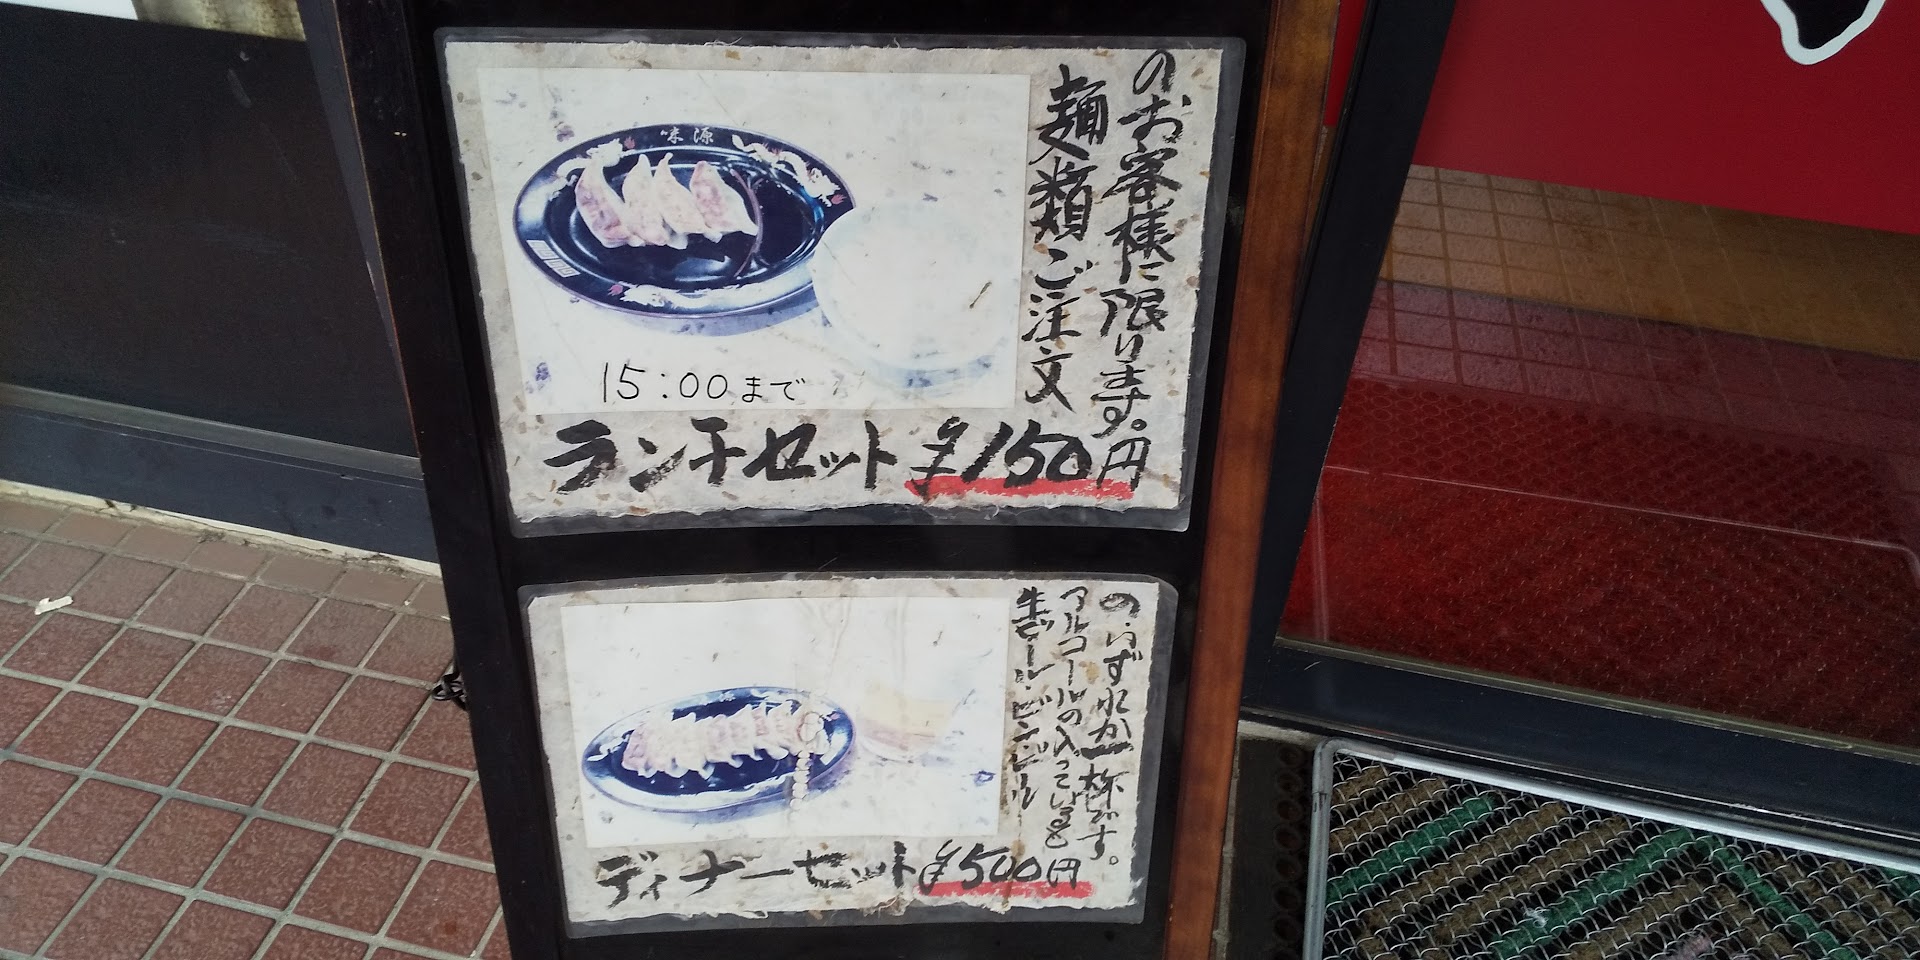 味源
15:00まで
麺類ご注文
のお客様に限ります。
ランチセット ¥150円
味源
生ビール・ビンビール
アルコールの入っている
のいずれか一杯です。
ディナーセット ¥500円